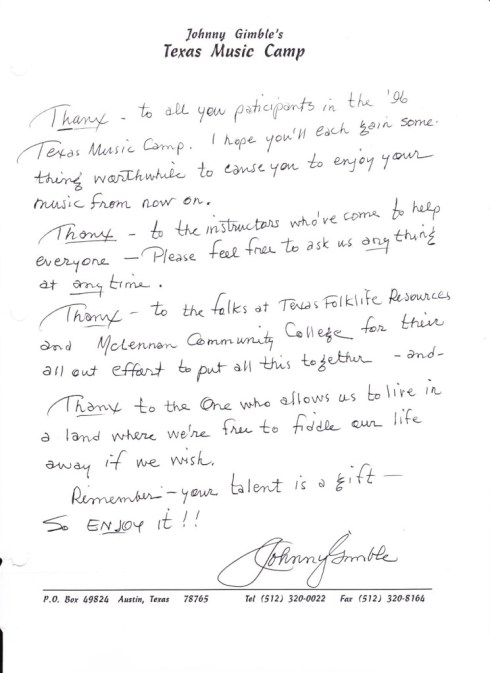 Johnny Gimble's
Texas Music Camp
Thanx - to all you paticipants in the '96
Texas Music Camp. I hope you'll each gain some-
thing worthwhile to cause you to enjoy your
music from now on.
Thanx - to the instructors who've come to help
everyone - Please feel free to ask us anything
at anytime.
Thanx - to the folks at Texas Folklife Resources
and McLennan Community College for their
all out effort to put all this together - and -
Thanx to the One who allows us to live in
a land where we're free to fiddle our life
away if we wish.
Remember - your talent is a gift -
So ENJOY it!!
Johnny Gimble
P.O. Box 49824 Austin, Texas 78765 Tel (512) 320-0022 Fax (512) 320-8164